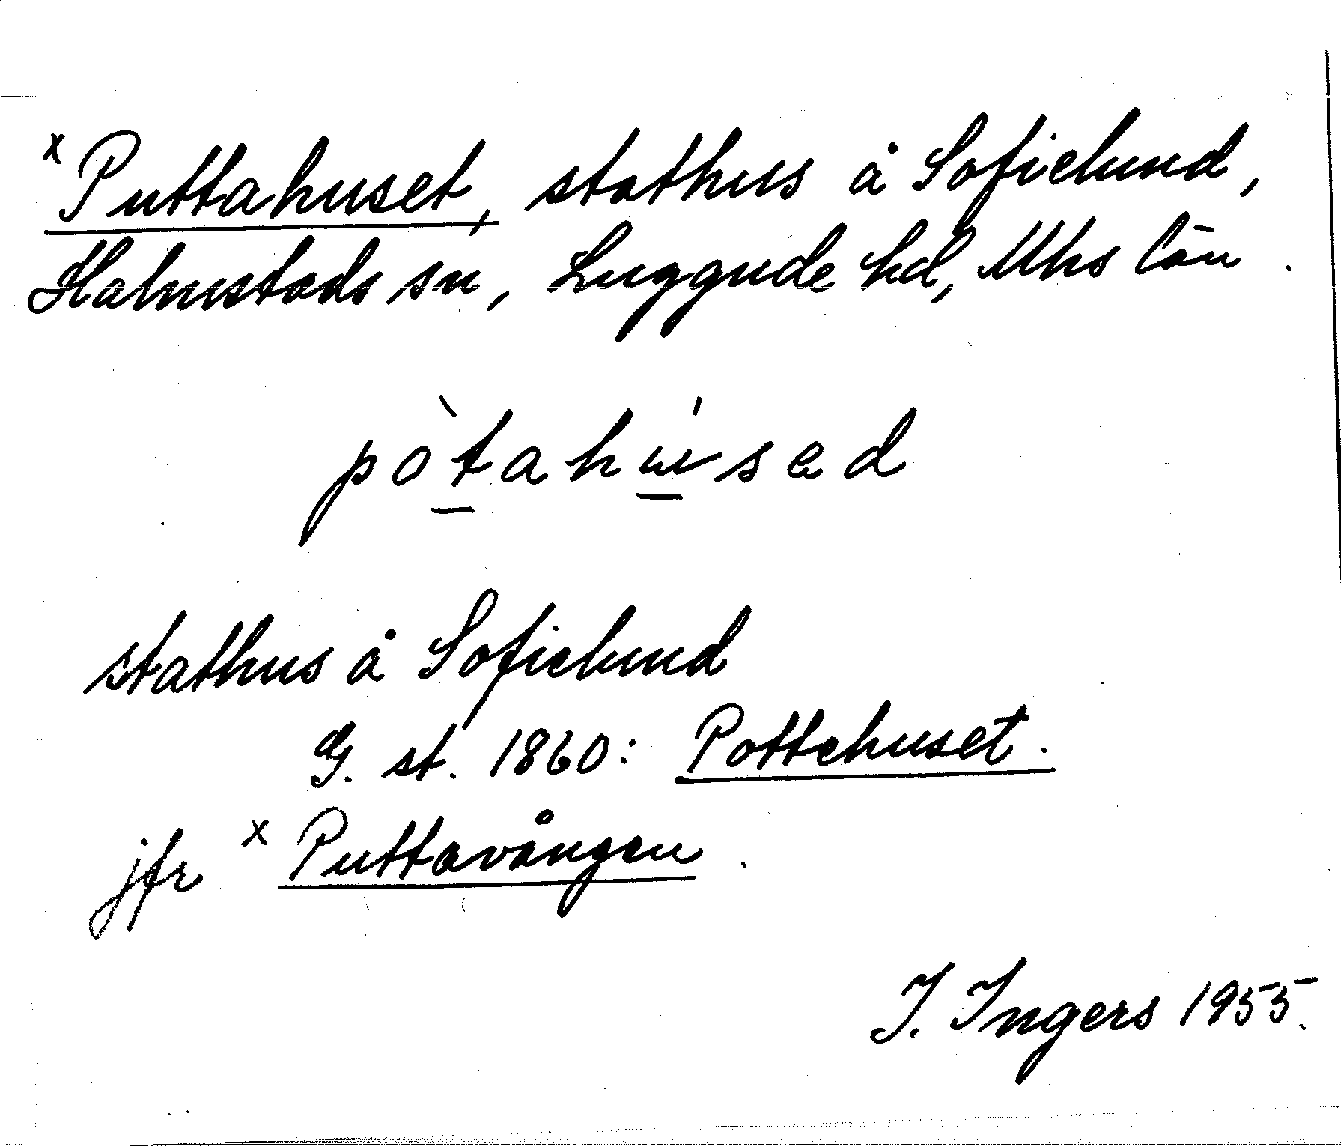 x Puttahuset, stathus å Sofielund,
Halmstads sn, Luggude hd, Mhs län.
pòtahúsəd
stathus å Sofielund
G. st. 1860: Pottehuset.
jfr x Puttavången.
I. Ingers 1955.